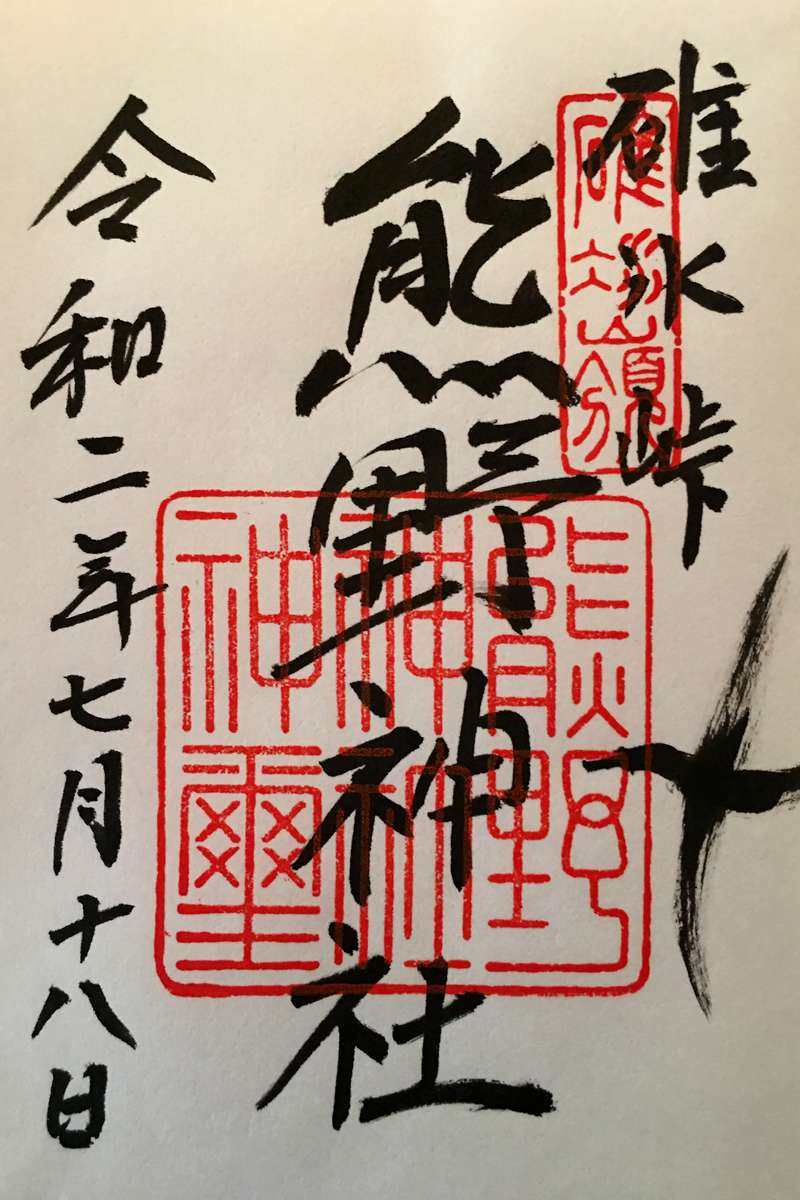 碓氷峠
碓冰嶺
熊野神社
熊野神社神璽
令和二年七月十八日